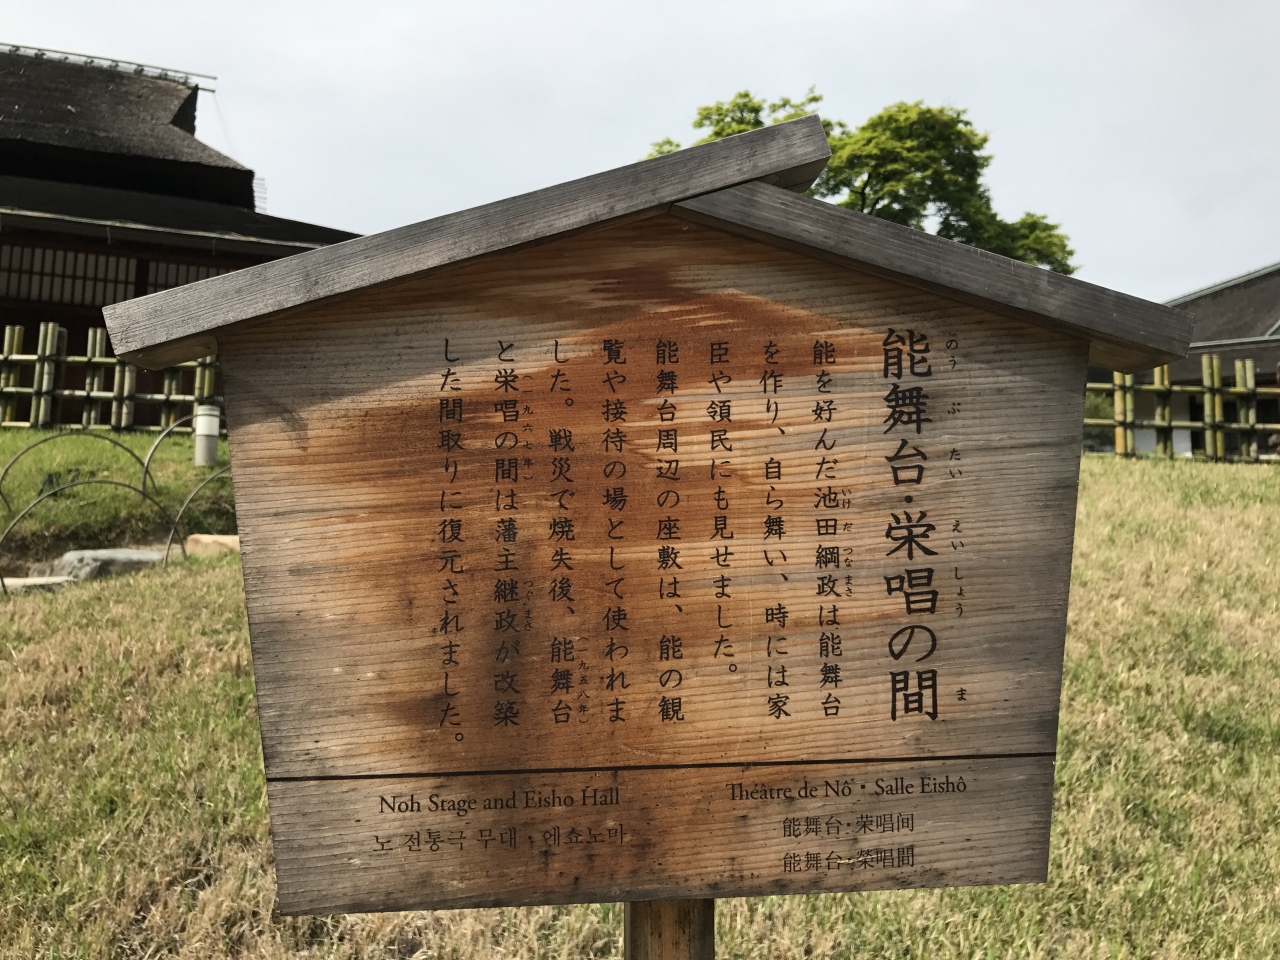 能舞台・栄唱の間
のう ぶ たい えい しょう ま
能を好んだ池田綱政は能舞台
いけ だ つな まさ
を作り、自ら舞い、時には家
臣や領民にも見せました。
能舞台周辺の座敷は、能の観
覧や接待の場として使われま
した。戦災で焼失後、能舞台
(一九五八年)
と栄唱の間は藩主継政が改築
(一九六七年)
つぐ まさ
した間取りに復元されました。
Noh Stage and Eisho Hall
노 전통극 무대・에쇼노마
Théâtre de Nô・Salle Eishô
能舞台・荣唱间
能舞台・榮唱間